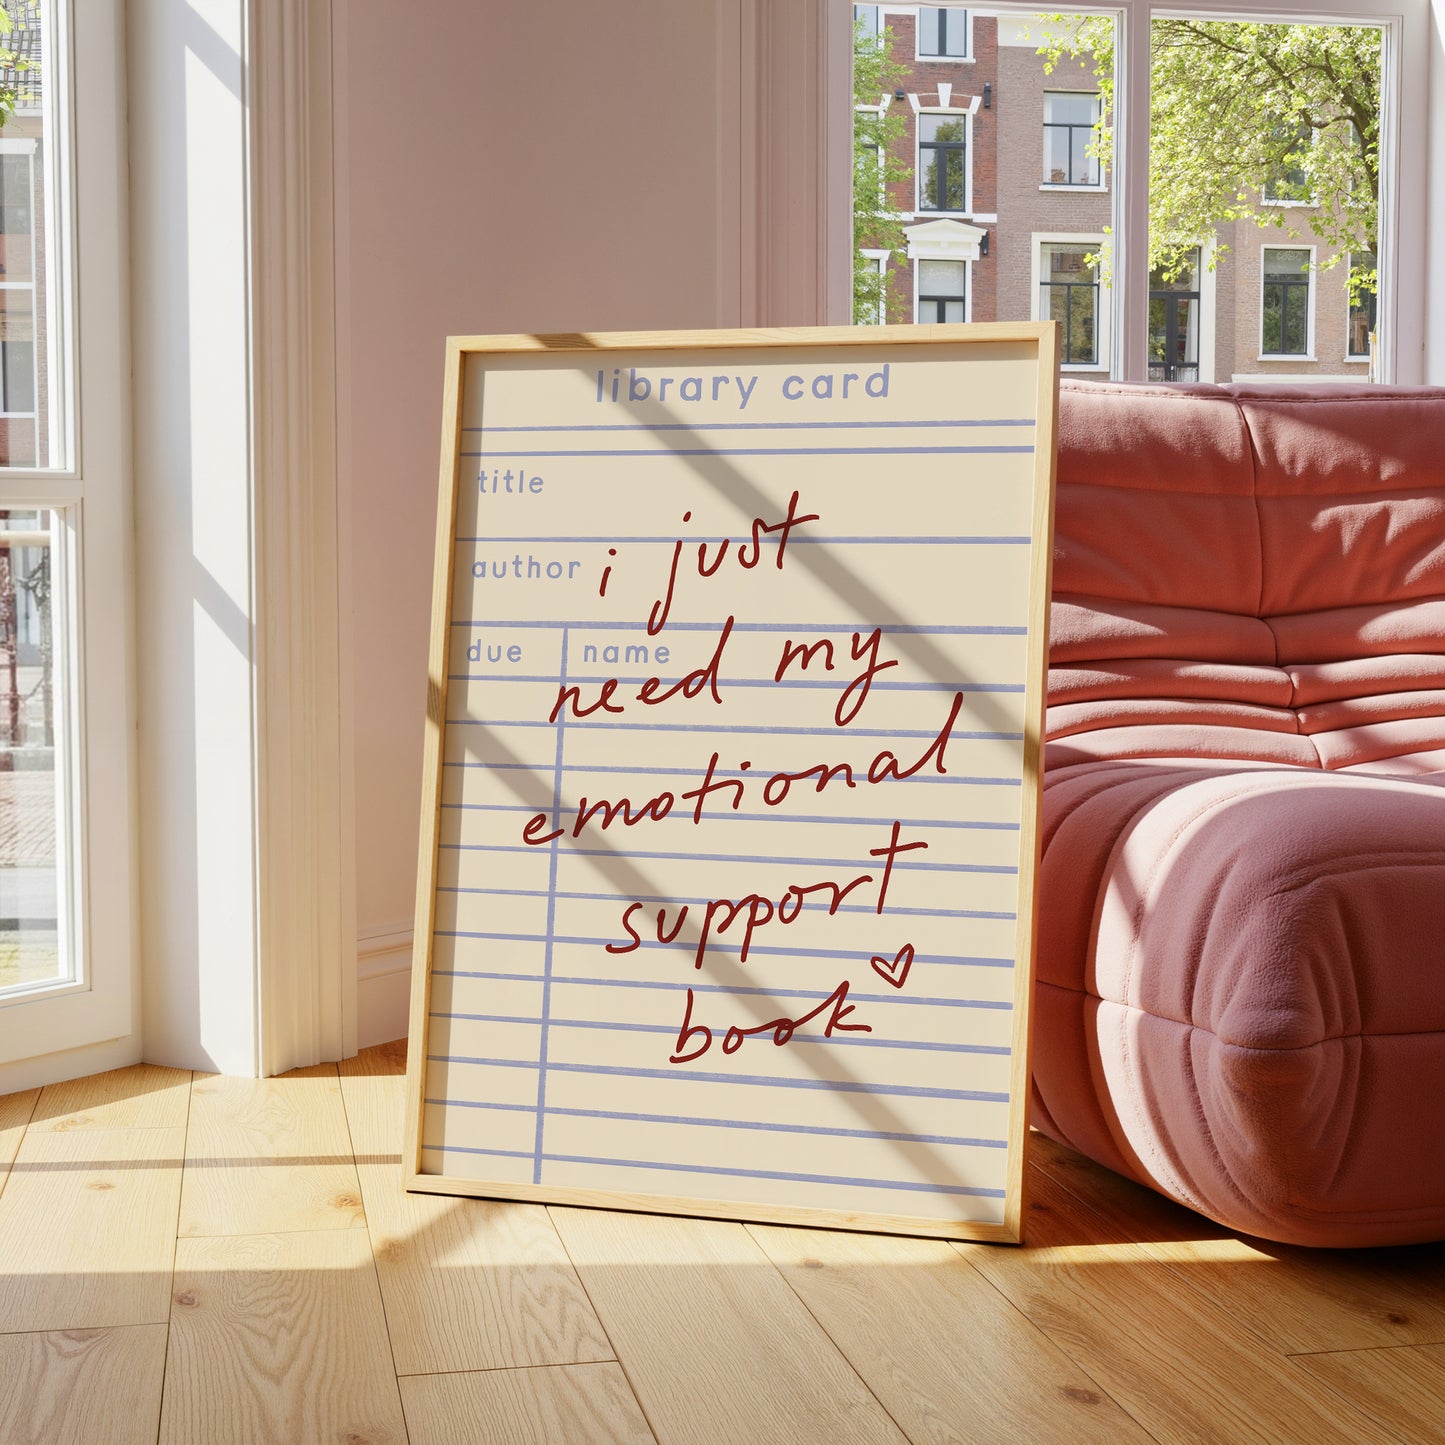 library card
title
author
i just
due name
need my
emotional
support
book